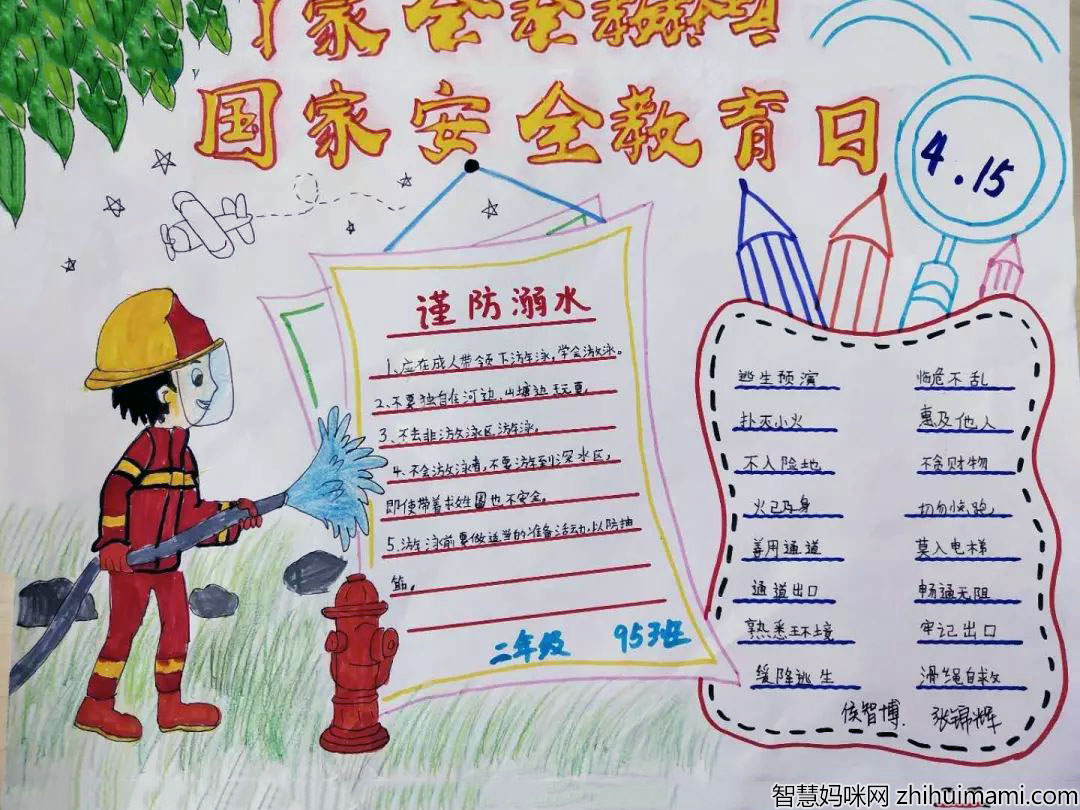 国家安全教育日
4.15
谨防溺水
1、应在成人带领下游泳，学会游泳。
2、不要独自在河边、山塘边玩夏。
3、不去非游泳区游泳。
4、不会游泳者，不要游到深水区，
即使带着救姓圈也不安全。
5、游泳前要做适当的准备活动，以防抽
筋。
二年级 953班
逃生预演 临危不乱
扑灭小火 惠及他人
不入险地 不贪财物
火已及身 切勿惊跑
善用通道 莫入电梯
通道出口 畅通无阻
熟悉环境 牢记出口
缓降逃生 滑绳自救
侯智博. 张锦辉
智慧妈咪网 zhihuimami.com